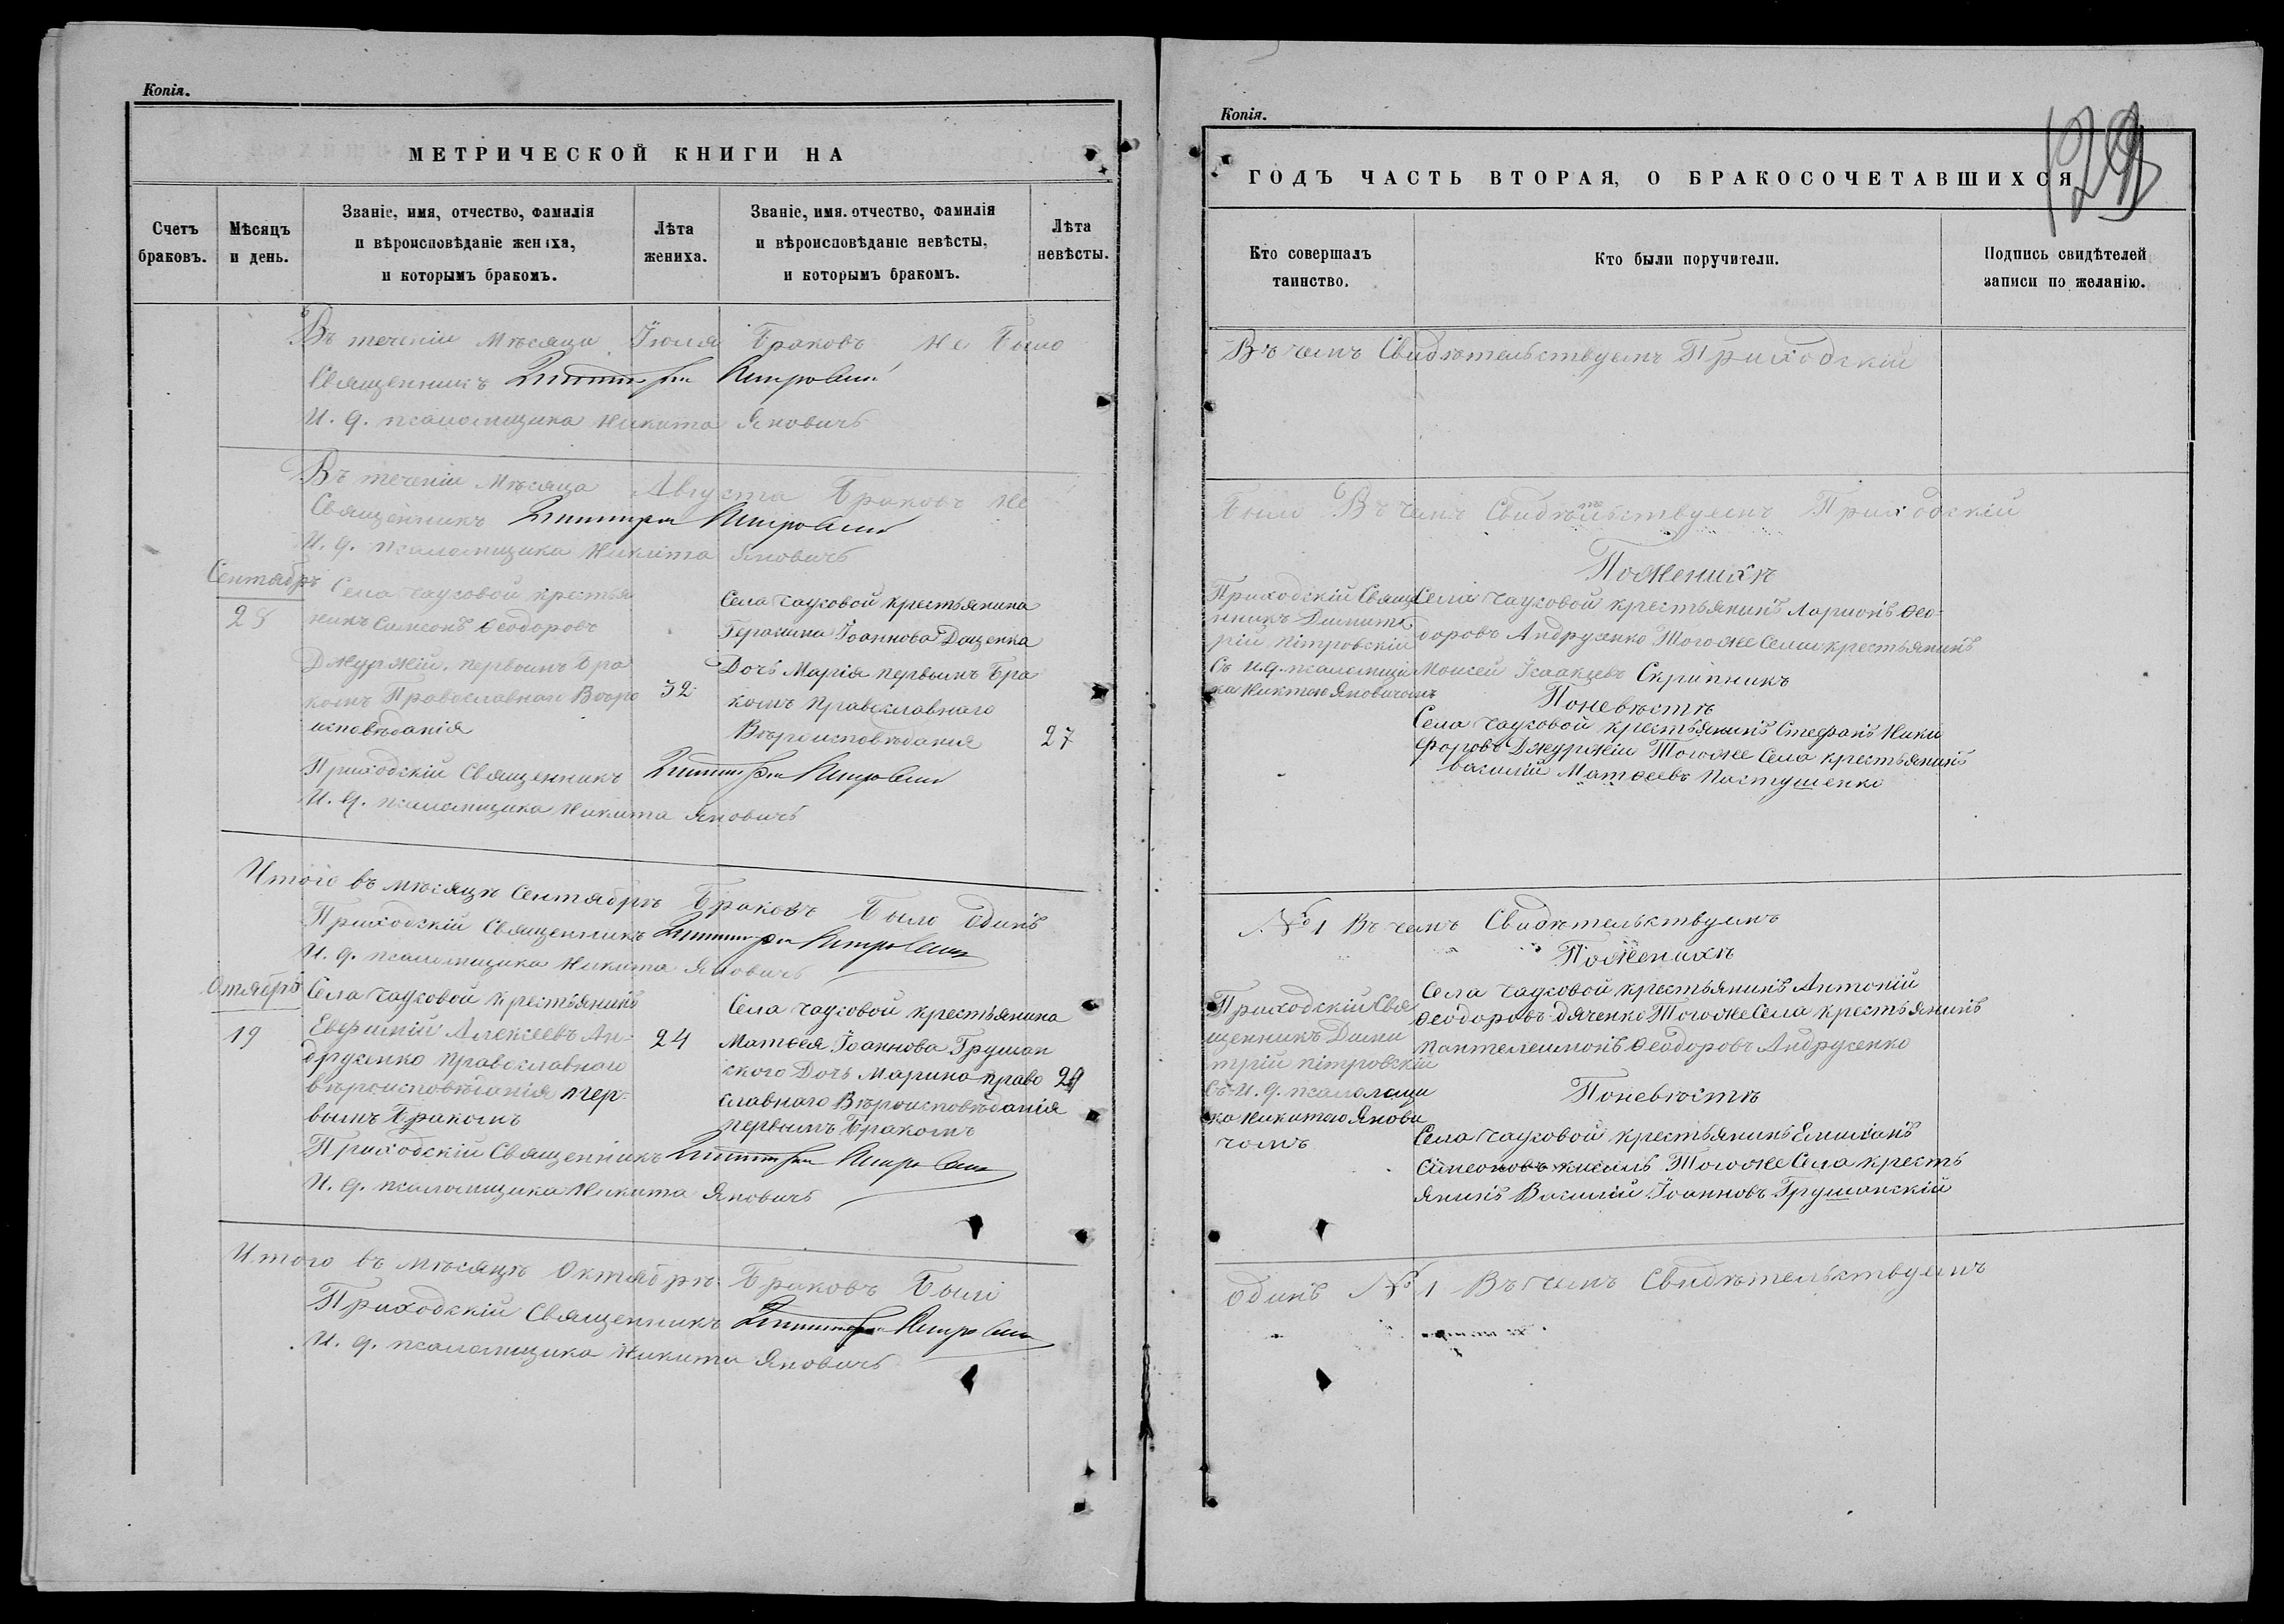 Копія.
МЕТРИЧЕСКОЙ КНИГИ НА
Счетъ браковъ.
Мѣсяцъ и день.
Званіе, имя, отчество, фамилія и вѣроисповѣданіе жениха, и которымъ бракомъ.
Лѣта жениха.
Званіе, имя. отчество, фамилія и вѣроисповѣданіе невѣсты, и которымъ бракомъ.
Лѣта невѣсты.
Въ теченіи Мѣсяца Іюля Браковъ Не Было
Священникъ Димитрій Петровскій
И. д. псаломщика Никита Яновичъ
Въ теченіи Мѣсяца Августа Браковъ Не
Священникъ Димитрій Петровскій
И. д. псаломщика Никита Яновичъ
Сентябрь
28
Села Чаусовой крестья
нинъ Симеонъ Ѳеодоровъ
Джуржій. первымъ Бра
комъ Православнаго Вѣро
исповѣданія
32
Села Чаусовой крестьянина
Герасима Іоаннова Доценка
Дочь Марія первымъ Бра
комъ Православнаго
Вѣроисповѣданія
27
Приходскій Священникъ Димитрій Петровскій
И. д. псаломщика Никита Яновичъ
Итого въ мѣсяцѣ Сентябрѣ Браковъ Было Одинъ
Приходскій Священникъ Димитрій Петровскій
И. д. псаломщика Никита Яновичъ
Отябрь
19
Села Чаусовой крестьянинъ
Евфимій Алексеевъ Ан-
друсенко православнаго
вѣроисповѣданія пер-
вымъ Бракомъ
24
Села Чаусовой крестьянина
Матѳея Іоаннова Грушан
ского Дочь Марина право
славнаго Вѣроисповѣданія
первымъ Бракомъ
Приходскій Священникъ Димитрій Петровскій
И. д. псаломщика Никита Яновичъ
Итого въ мѣсяцѣ Октябрѣ Браковъ Былі
Приходскій Священникъ Димитрій Петровскій
И. д. псаломщика Никита Яновичъ
Копія.
129
ГОДЪ ЧАСТЬ ВТОРАЯ, О БРАКОСОЧЕТАВШИХСЯ
Кто совершалъ таинство.
Кто были поручители.
Подпись свидѣтелей записи по желанію.
Въ чемъ Свидѣтельствуемъ Приходскій
Было Въ чемъ Свидѣтельствуемъ Приходскій
Приходскій Свяще
нникъ Димит
рій Пітровскій
Съ И.д. псаломщи
ка Никитою Яновичомъ
Поженихѣ
Села Чаусовой крестьянинъ Ларионъ Ѳео-
доровъ Андрусенко Тогоже Села крестьянинъ
Моисей Ісаакіевъ Скрипникъ
Поневѣстѣ
Села Чаусовой крестьянинъ Стефанъ Ники
форовъ Джуржій Тогоже Села крестьянинъ
василій Матѳеевъ Пастушенко
№ 1 Въ чемъ Свидѣтельствуемъ
Приходскій Свя
щенникъ Дими
трій Пітровскій
Съ И. д. псаломщи
ка Никитою Янови
чомъ
Поженихѣ
Села Чаусовой крестьянинъ Антоній
Ѳеодоровъ Дяченко Тогоже Села крестьянинъ
Пантелеимонъ Ѳеодоровъ Андрусенко
Поневѣстѣ
Села Чаусовой крестьянинъ Емилианъ
Тогоже Села кресть
янинъ Василій Іоанновъ Грушанскій
Одинъ № 1 Въ чемъ Свидѣтельствуемъ